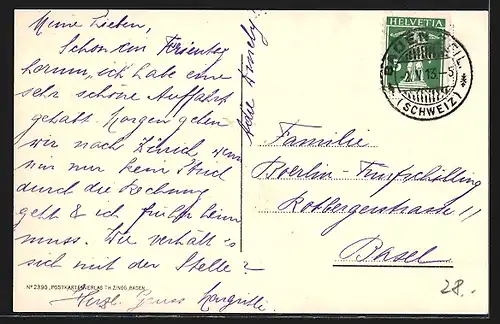 Meine Lieben,
Schon ein Ferientag
herum, ich habe eine
sehr schöne Auffahrt
gehabt. Morgen gehen
wir nach Zürich wenn
mir nur kein Strich
durch die Rechnung
geht & ich früher heim
muss. Wie verhält's
sich mit der Stelle?
Herzl. Gruss
HELVETIA
BADEN
2. V. 13. - 5
(SCHWEIZ)
Familie
Boerlin-Fünfschilling
Rotbergerstrasse 11
Basel
28.
Nº 2390, POSTKARTENVERLAG TH. ZINGG, BADEN.